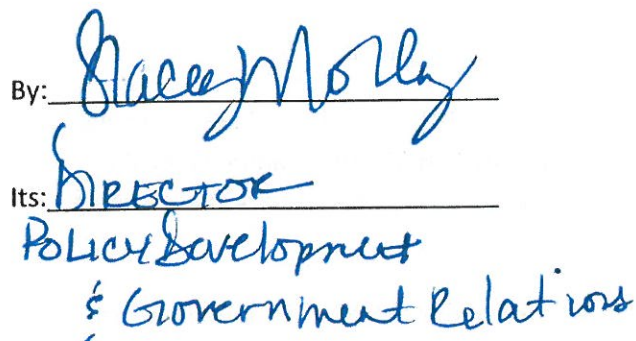 By: Stacey Morley
Its: DIRECTOR
Policy Development
& Government Relations